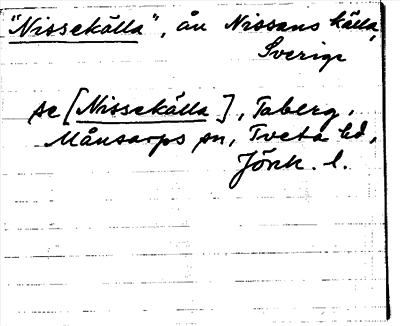 "Nissekälla", ån Nissans källa,
Sverige
se [Nissekälla], Taberg,
Månsarps sn, Tveta hd,
Jönk. l.